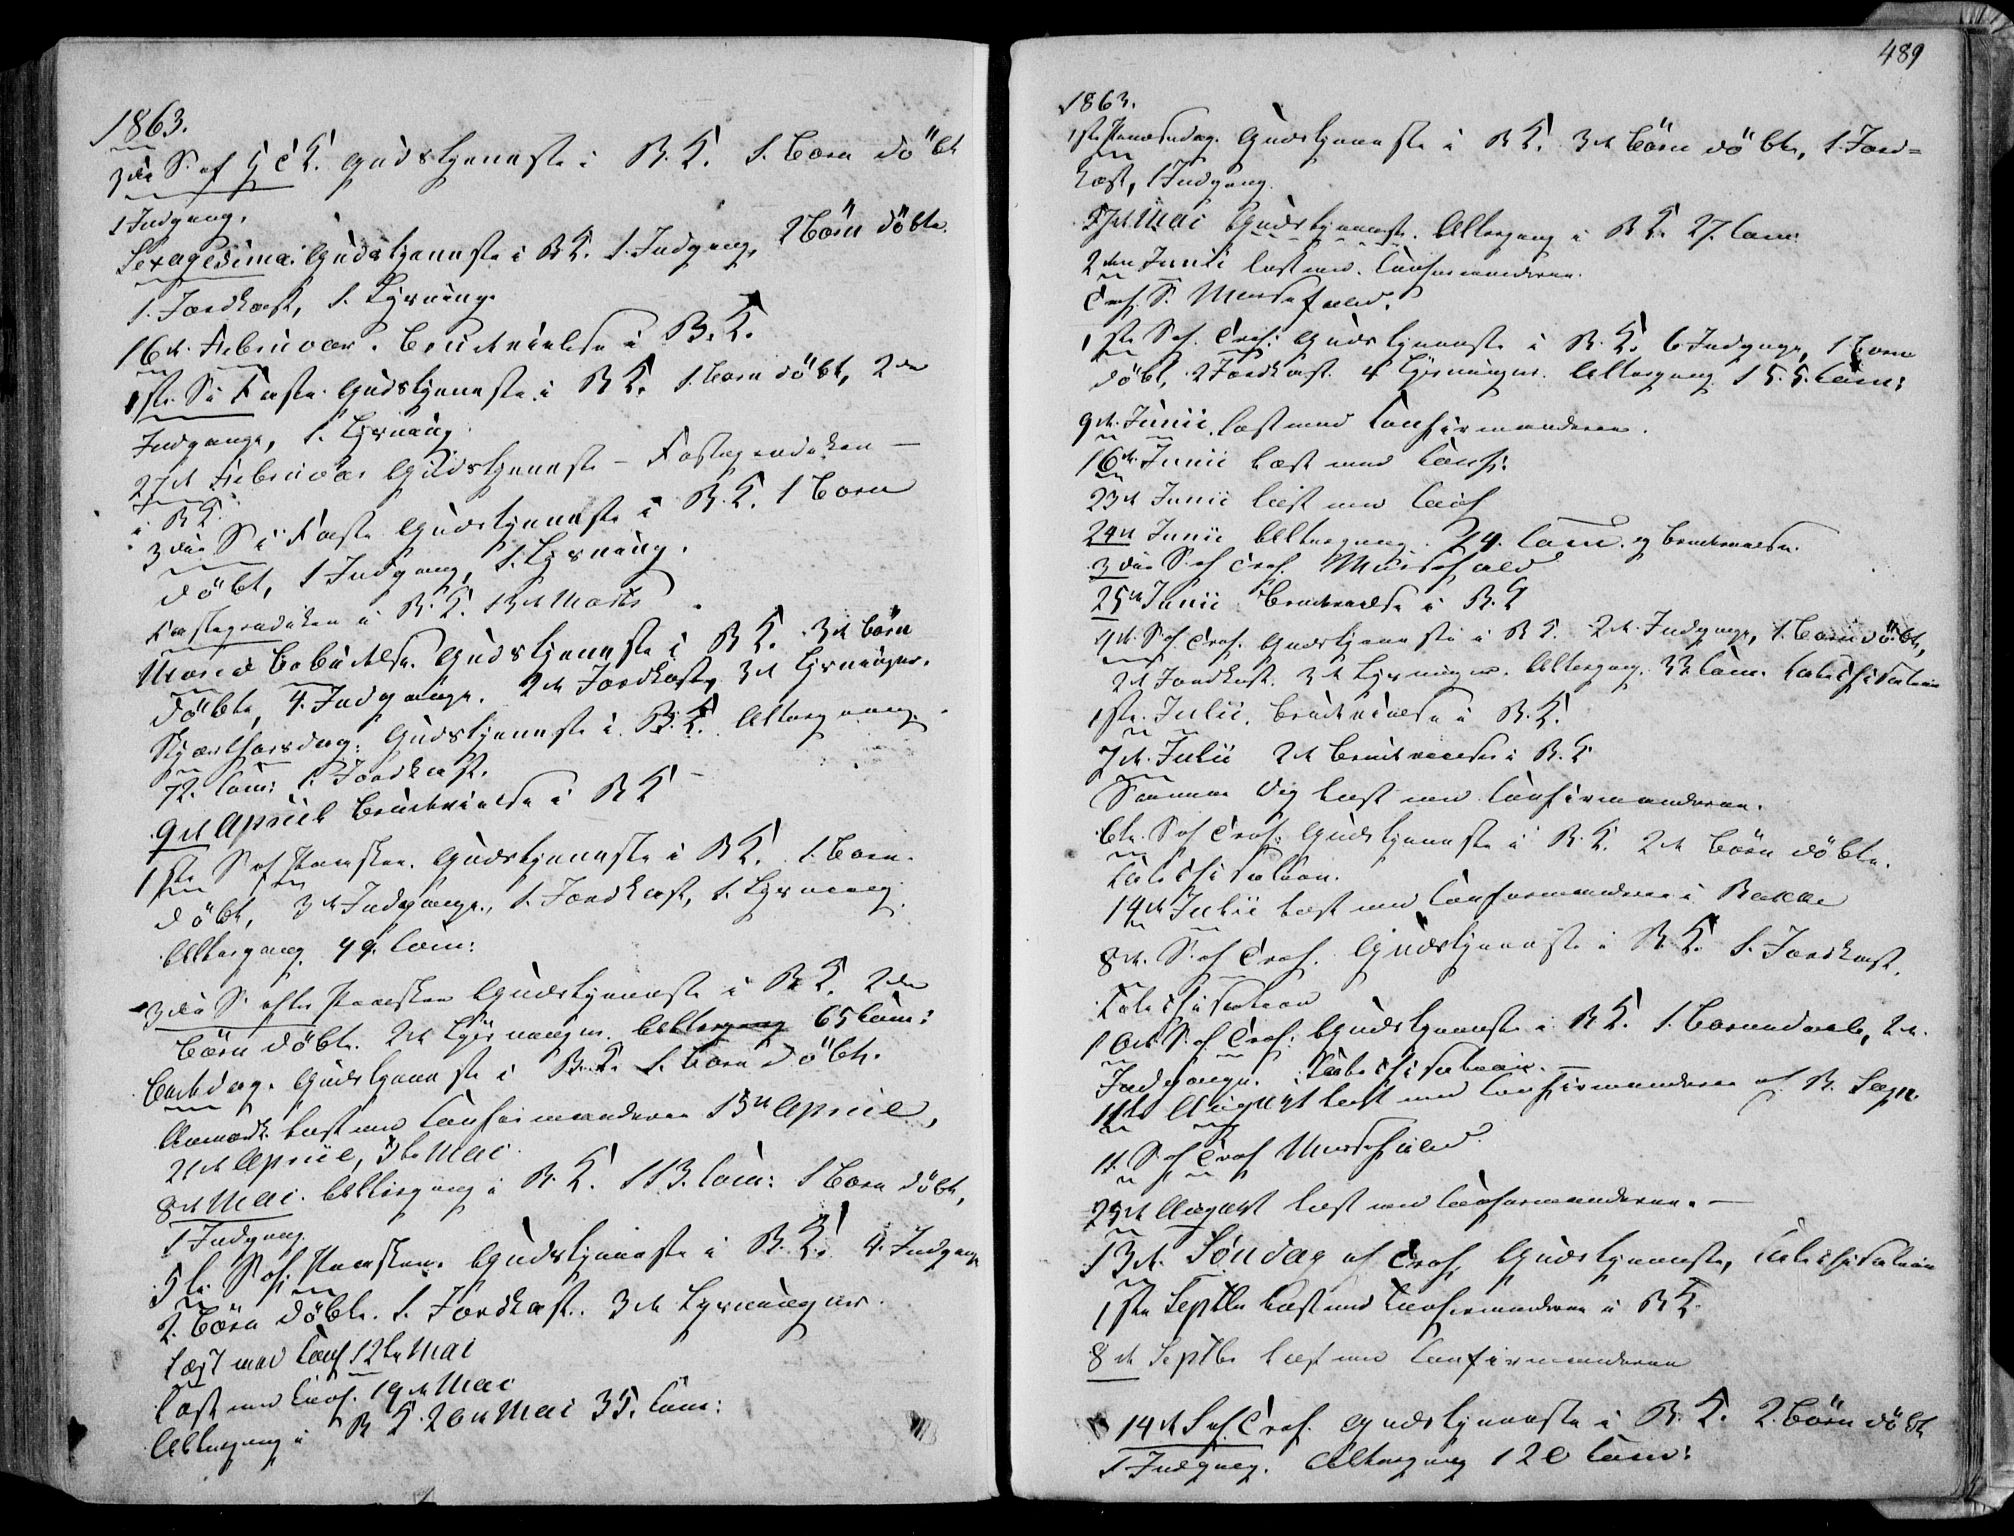 1863.
3die S. ef H C K. Gudstjeneste i B. K. 1. Barn döbt
1 Indgang.
Sexagesima: Gudstjeneste i B K. 1. Indgang, 2 Börn döbte.
1. Jordkast, 1. Lysning.
16de Februar. Brudevielse i B. K.
1ste S. i Faste Gudstjeneste i B K. 1. Barn döbt, 2de
Indgange, 1. Lysning.
27de Februar Gudstjeneste – Fasteprædiken –
i B K.
3die S i Faste Gudstjeneste i B. K. 1 Barn
döbt, 1 Indgang, 1. Lysning.
Fasteprædiken i B. K. 13de Marts
Mariæ Bebudelse. Gudstjeneste i B K. 3de Börn
döbte, 4. Indgange. 2de Jordkast, 3de Lysninger.
Skjærthorsdag: Gudstjeneste i B. K. Altergang.
72. Com: 1. Jordkast.
9de April Brudevielse i B K –
1ste S. ef Paasken. Gudstjeneste i B K. 1. Barn
döbt, 3de Indgange, 1. Jordkast, 1. Lysning.
Altergang 49. Com:
3die S. efter Paasken Gudstjeneste i B K. 2de
Börn döbte. 2de Lysninger. Altergang 65 Com:
Bededag. Gudstjeneste i B. K. 1. Barn döbt.
Anmærk. læst med Confirmanderne 13de April,
21de April, 5te Mai.
8de Mai. Altergang i B. K. 113. Com: 1 Barn döbt,
1 Indgang
5te S. ef: Paasken. Gudstjeneste i B. K. 4. Indgange
2. Börn döbte. 1. Jordkast. 3de Lysninger.
Læst med Conf 12te Mai
Læst med Conf. 19de Mai
Altergang i B K 26de Mai 35. Com:
489
1863.
1ste Pindsedag. Gudstjeneste i B K. 3de Börn döbte, 1. Jord=
kast, 1 Indgang.
27de Mai Gudstjeneste. Altergang i B K. 27. Com:
2den Junii læst med Confirmanderne.
Tref. S. Messefald.
1ste S. ef. Tref: Gudstjeneste i B. K. 6 Indgange, 1 Barn
döbt, 2 Jordkast. 4 Lysninger. Altergang 155. Com:
9de Junii læst med Confirmanderne.
16de Junii læst med Conf:
23de Junii læst med Conf
24de Junii Altergang. 74. Com. og Brudevielse.
3die S. ef Tref. Messefald
25de Junii Brudevielse i B. K
4de S. ef Tref. Gudstjeneste i B K. 2de Indgange, 1. Barn döbt,
2de Jordkast. 3de Lysninger. Altergang. 33 Com. Catechisation
1ste Julii. Brudevielse i B. K.
7de Julii 2de Brudevielser i B. K
Samme Dag læst med Confirmanderne.
6te S. ef Tref: Gudstjeneste i B. K. 2de Börn döbte.
Catechisation.
14de Julii læst med Confirmanderne i Bakke
8de S. ef Tref. Gudstjeneste i B. K. 1. Jordkast.
Catechisation
10de S. ef Tref: Gudstjeneste i B K. 1. Barnedaab, 2de
Indgange. Catechisation. –
11te August læst med Confirmanderne af B. Sogn.
11. S. ef Tref Messefald
25de August læst med Confirmanderne. –
13de Söndag ef Tref Gudstjeneste, Catechisation
1ste Septbr læst med Confirmanderne i B K.
8de Septbr læst med Confirmanderne
14de S. ef. Tref. Gudstjeneste i B. K. 2. Börn döbt
1 Indgang. Altergang 120 Com: